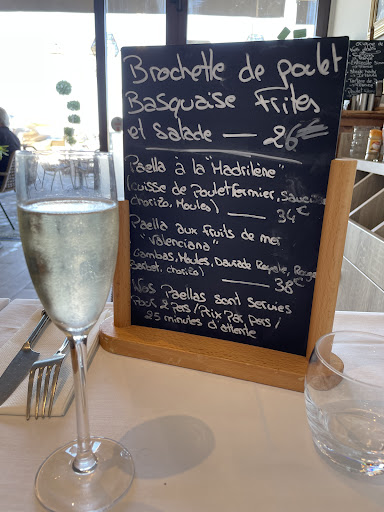 Brochette de poulet
Basquaise frites
et Salade — 26€
Paella à la "Madrilène"
(Cuisse de Poulet Fermier, Sauciss
chorizo, Moules) — 34€
Paella aux fruits de mer
"Valenciana"
Gambas, Moules, Daurade Royale, Rouget
Barbet, chorizo) — 38€
Nos Paellas sont servies
Pour 2 Pers / Prix Par pers /
25 minutes d'attente